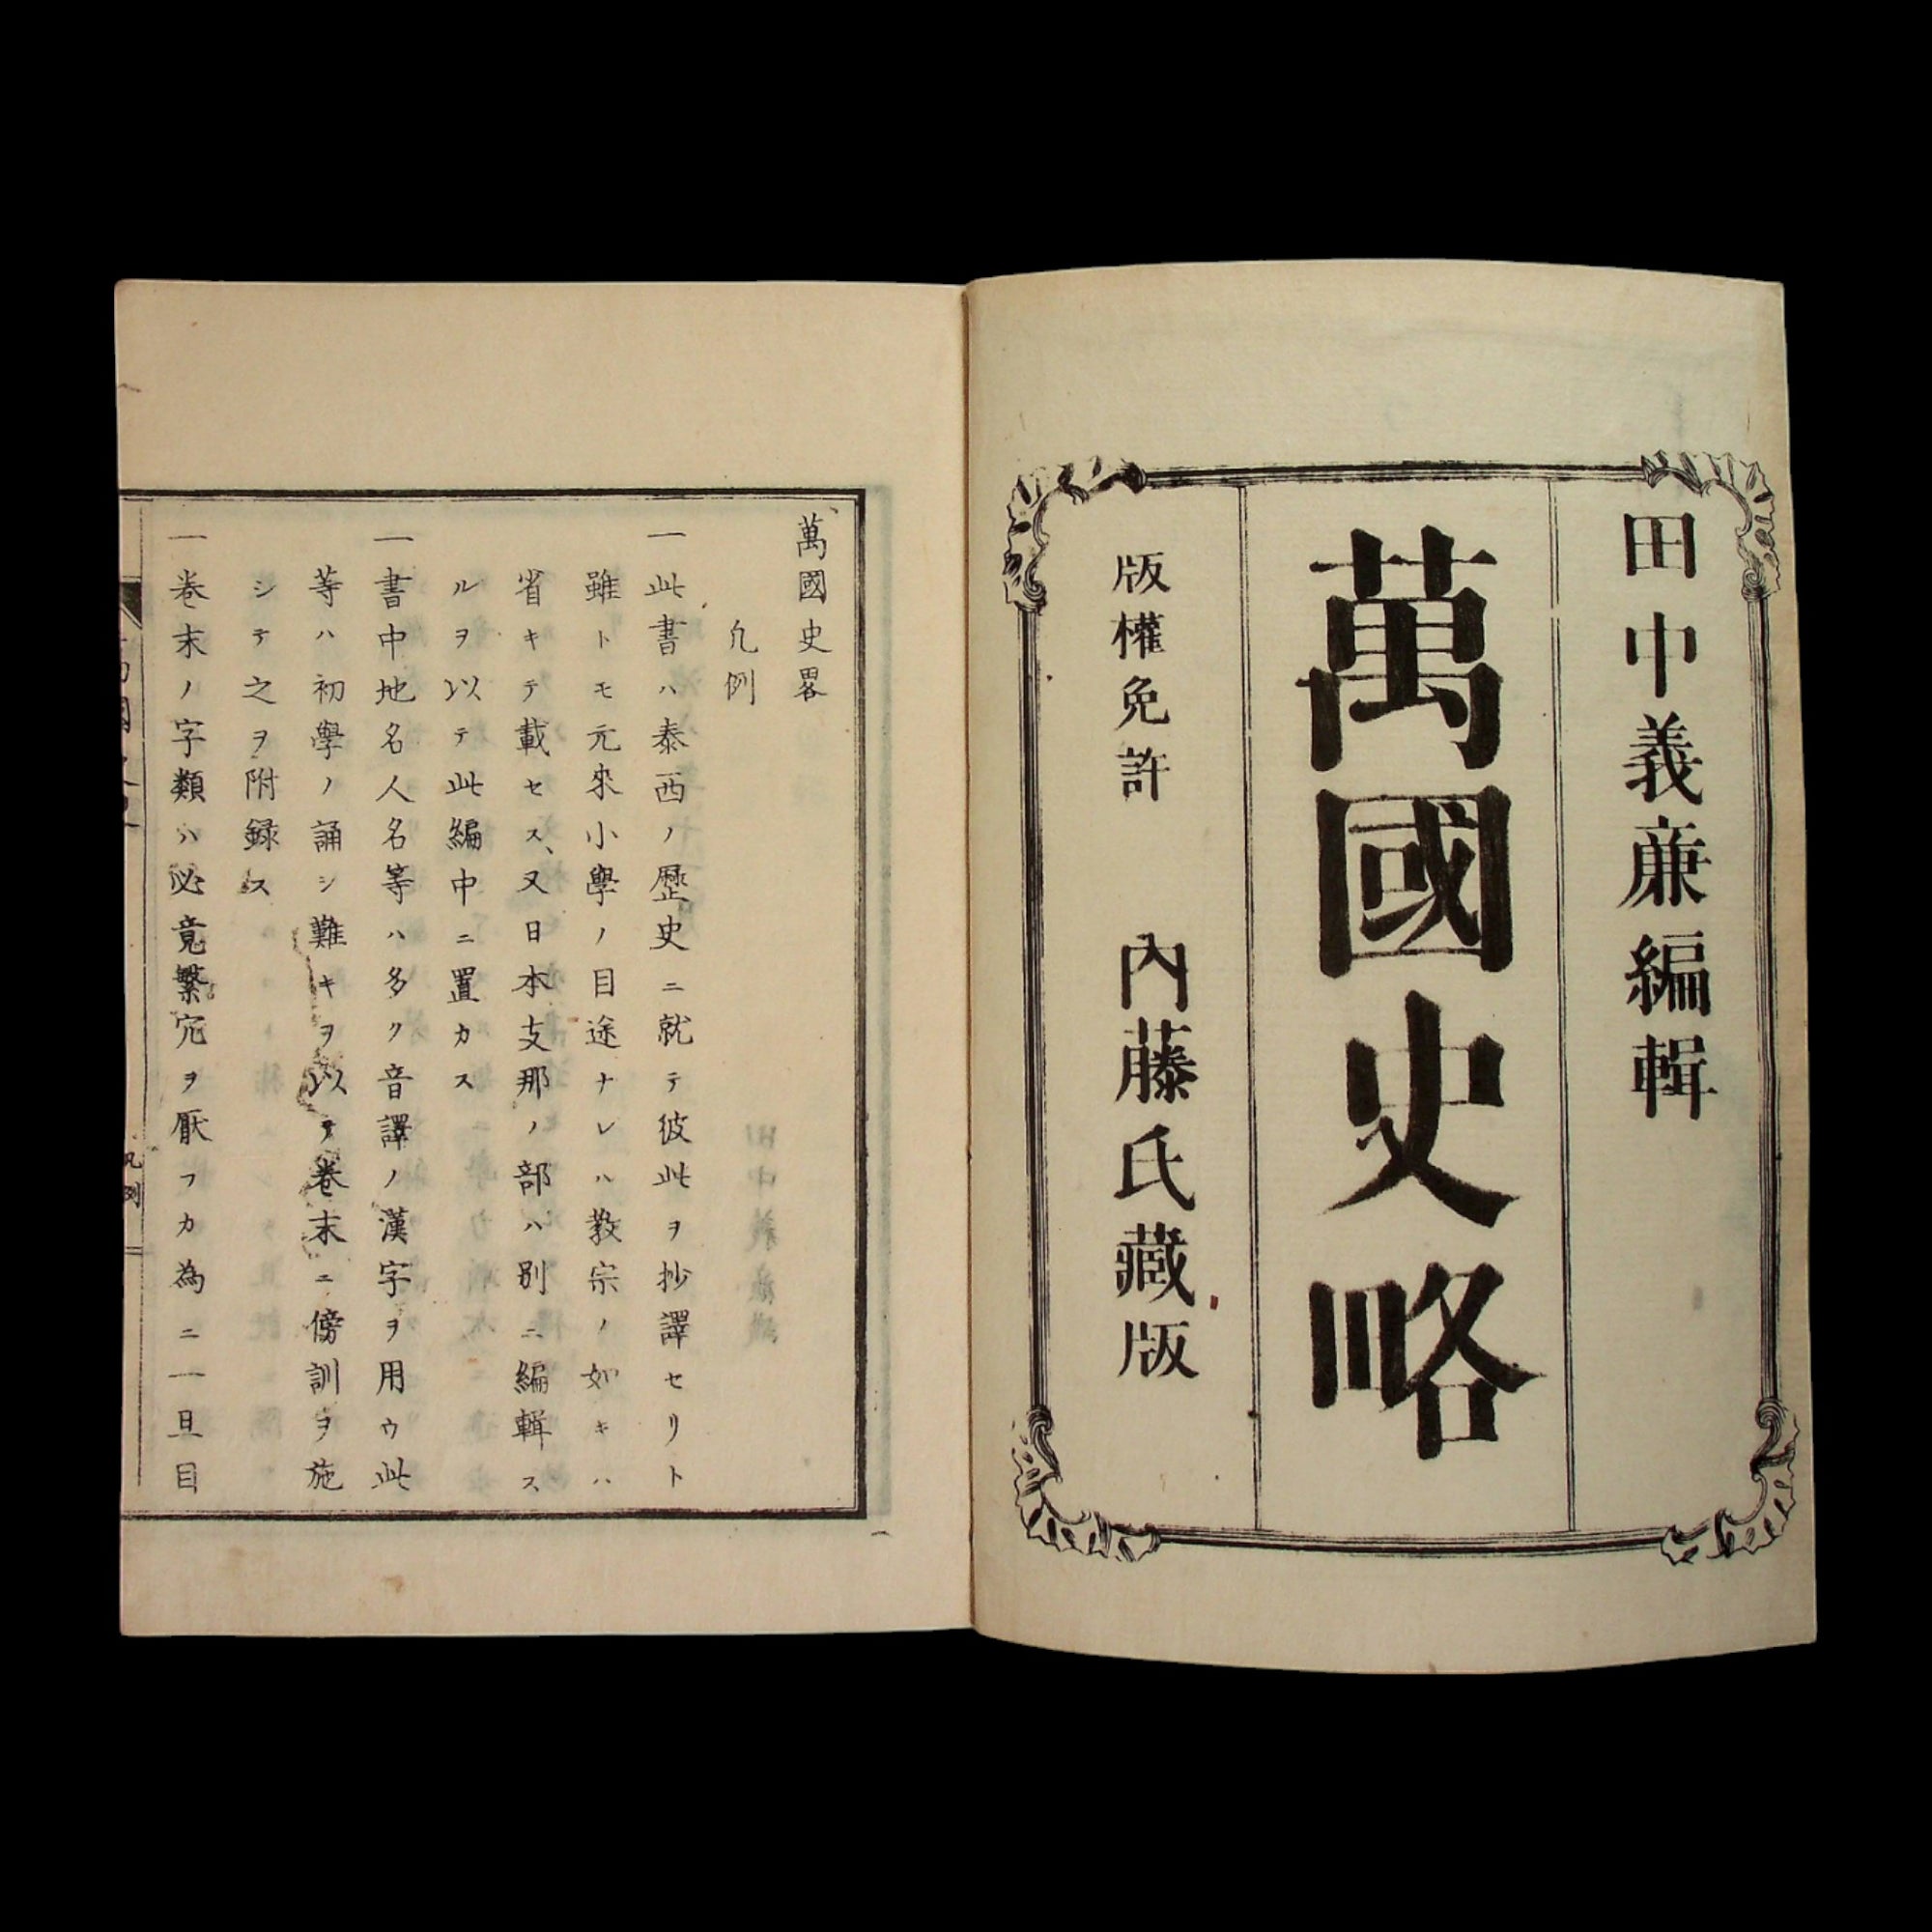 田中義廉編輯
萬國史略
版權免許　内藤氏藏版
萬國史畧
凡例
一此書ハ泰西ノ歷史ニ就テ彼此ヲ抄譯セリト
雖トモ元來小學ノ目途ナレハ教宗ノ如キハ
省キテ載セス、又日本支那ノ部ハ別ニ編輯ス
ルヲ以テ此編中ニ置カス
一書中地名人名等ハ多ク音譯ノ漢字ヲ用ウ此
等ハ初學ノ誦シ難キヲ以テ卷末ニ傍訓ヲ施
シテ之ヲ附録ス
一卷末ノ字類ハ必竟繁冗ヲ厭フカ為ニ一旦目
凡例